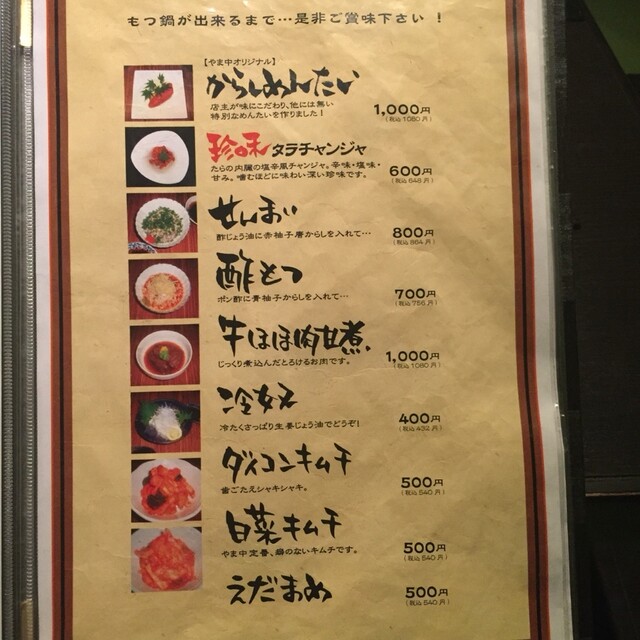 もつ鍋が出来るまで…是非ご賞味下さい！
【やま中オリジナル】
からしめんたい
店主が味にこだわり、他には無い
特別なめんたいを作りました！
1,000円
（税込 1080円）
珍味 タラチャンジャ
たらの内臓の塩辛風チャンジャ。辛味・塩味・
甘み。噛むほどに味わい深い珍味です。
600円
（税込 648円）
せんまい
酢じょう油に赤柚子唐からしを入れて…
800円
（税込 864円）
酢もつ
ポン酢に青柚子からしを入れて…
700円
（税込 756円）
牛ほほ肉甘煮
じっくり煮込んだとろけるお肉です。
1,000円
（税込 1080円）
冷奴
冷たくさっぱり生姜じょう油でどうぞ！
400円
（税込 432円）
ダイコンキムチ
歯ごたえシャキシャキ。
500円
（税込 540円）
白菜キムチ
やま中定番、癖のないキムチです。
500円
（税込 540円）
えだまめ
500円
（税込 540円）